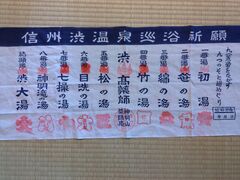 信州渋温泉巡浴祈願
一番湯 初湯
二番湯 笹の湯
三番湯 綿の湯
四番湯 竹の湯
渋高薬師
五番湯 松の湯
六番湯 目洗の湯
七番湯 七操の湯
八番湯 神明滝湯
結願湯 渋大湯